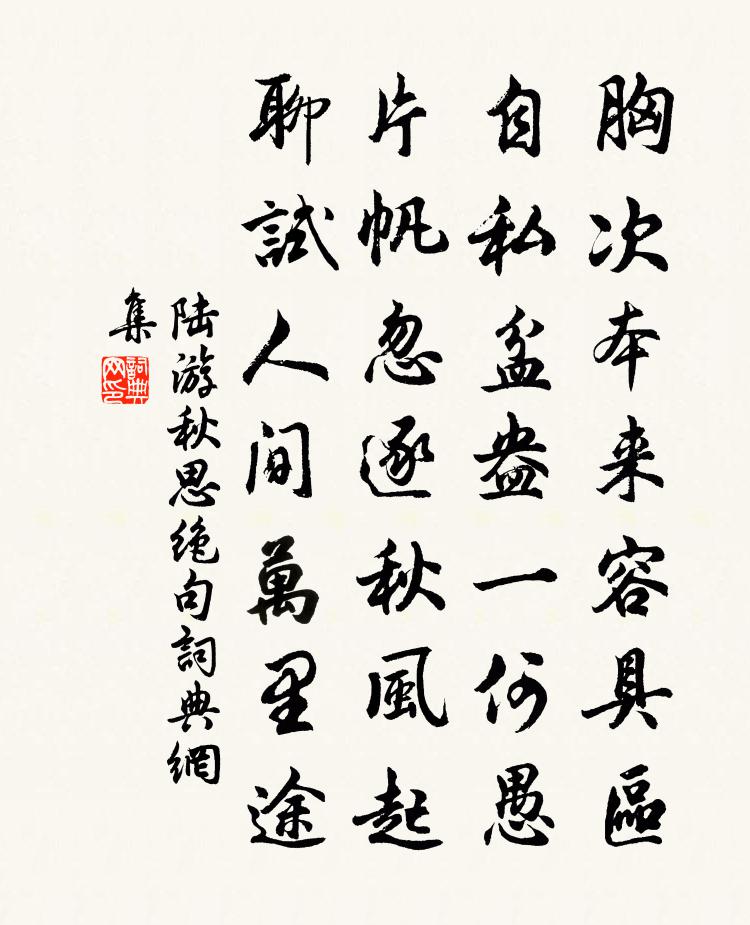 胸次本来容具區
自私盆盎一何愚
片帆忽逐秋風起
聊試人间萬里途
陆游秋思绝句詞典網
集
詞典
网印